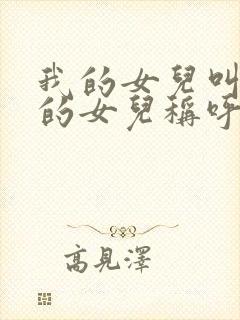 我的女兒叫
的女兒稱呼
高見澤